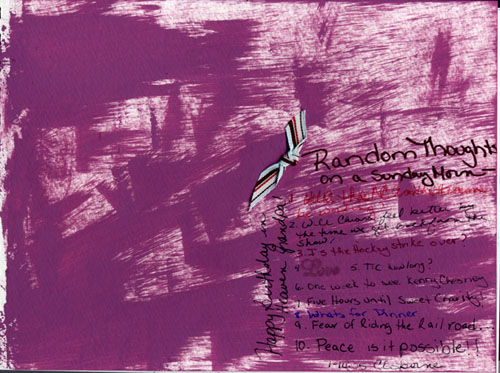 Random Thoughts
on a Sunday Morn
2. Will feel better by
the time we get from the
show?
3. Is the Hockey strike over?
4. Love 5. TTC how long?
6. One week to see Kenny Chesney
7. Five Hours until Sweet Charity!
8. Whats for Dinner
9. Fear of Riding the Railroad.
10. Peace is it possible!!
Happy Birthday in
Heaven Grandpa!